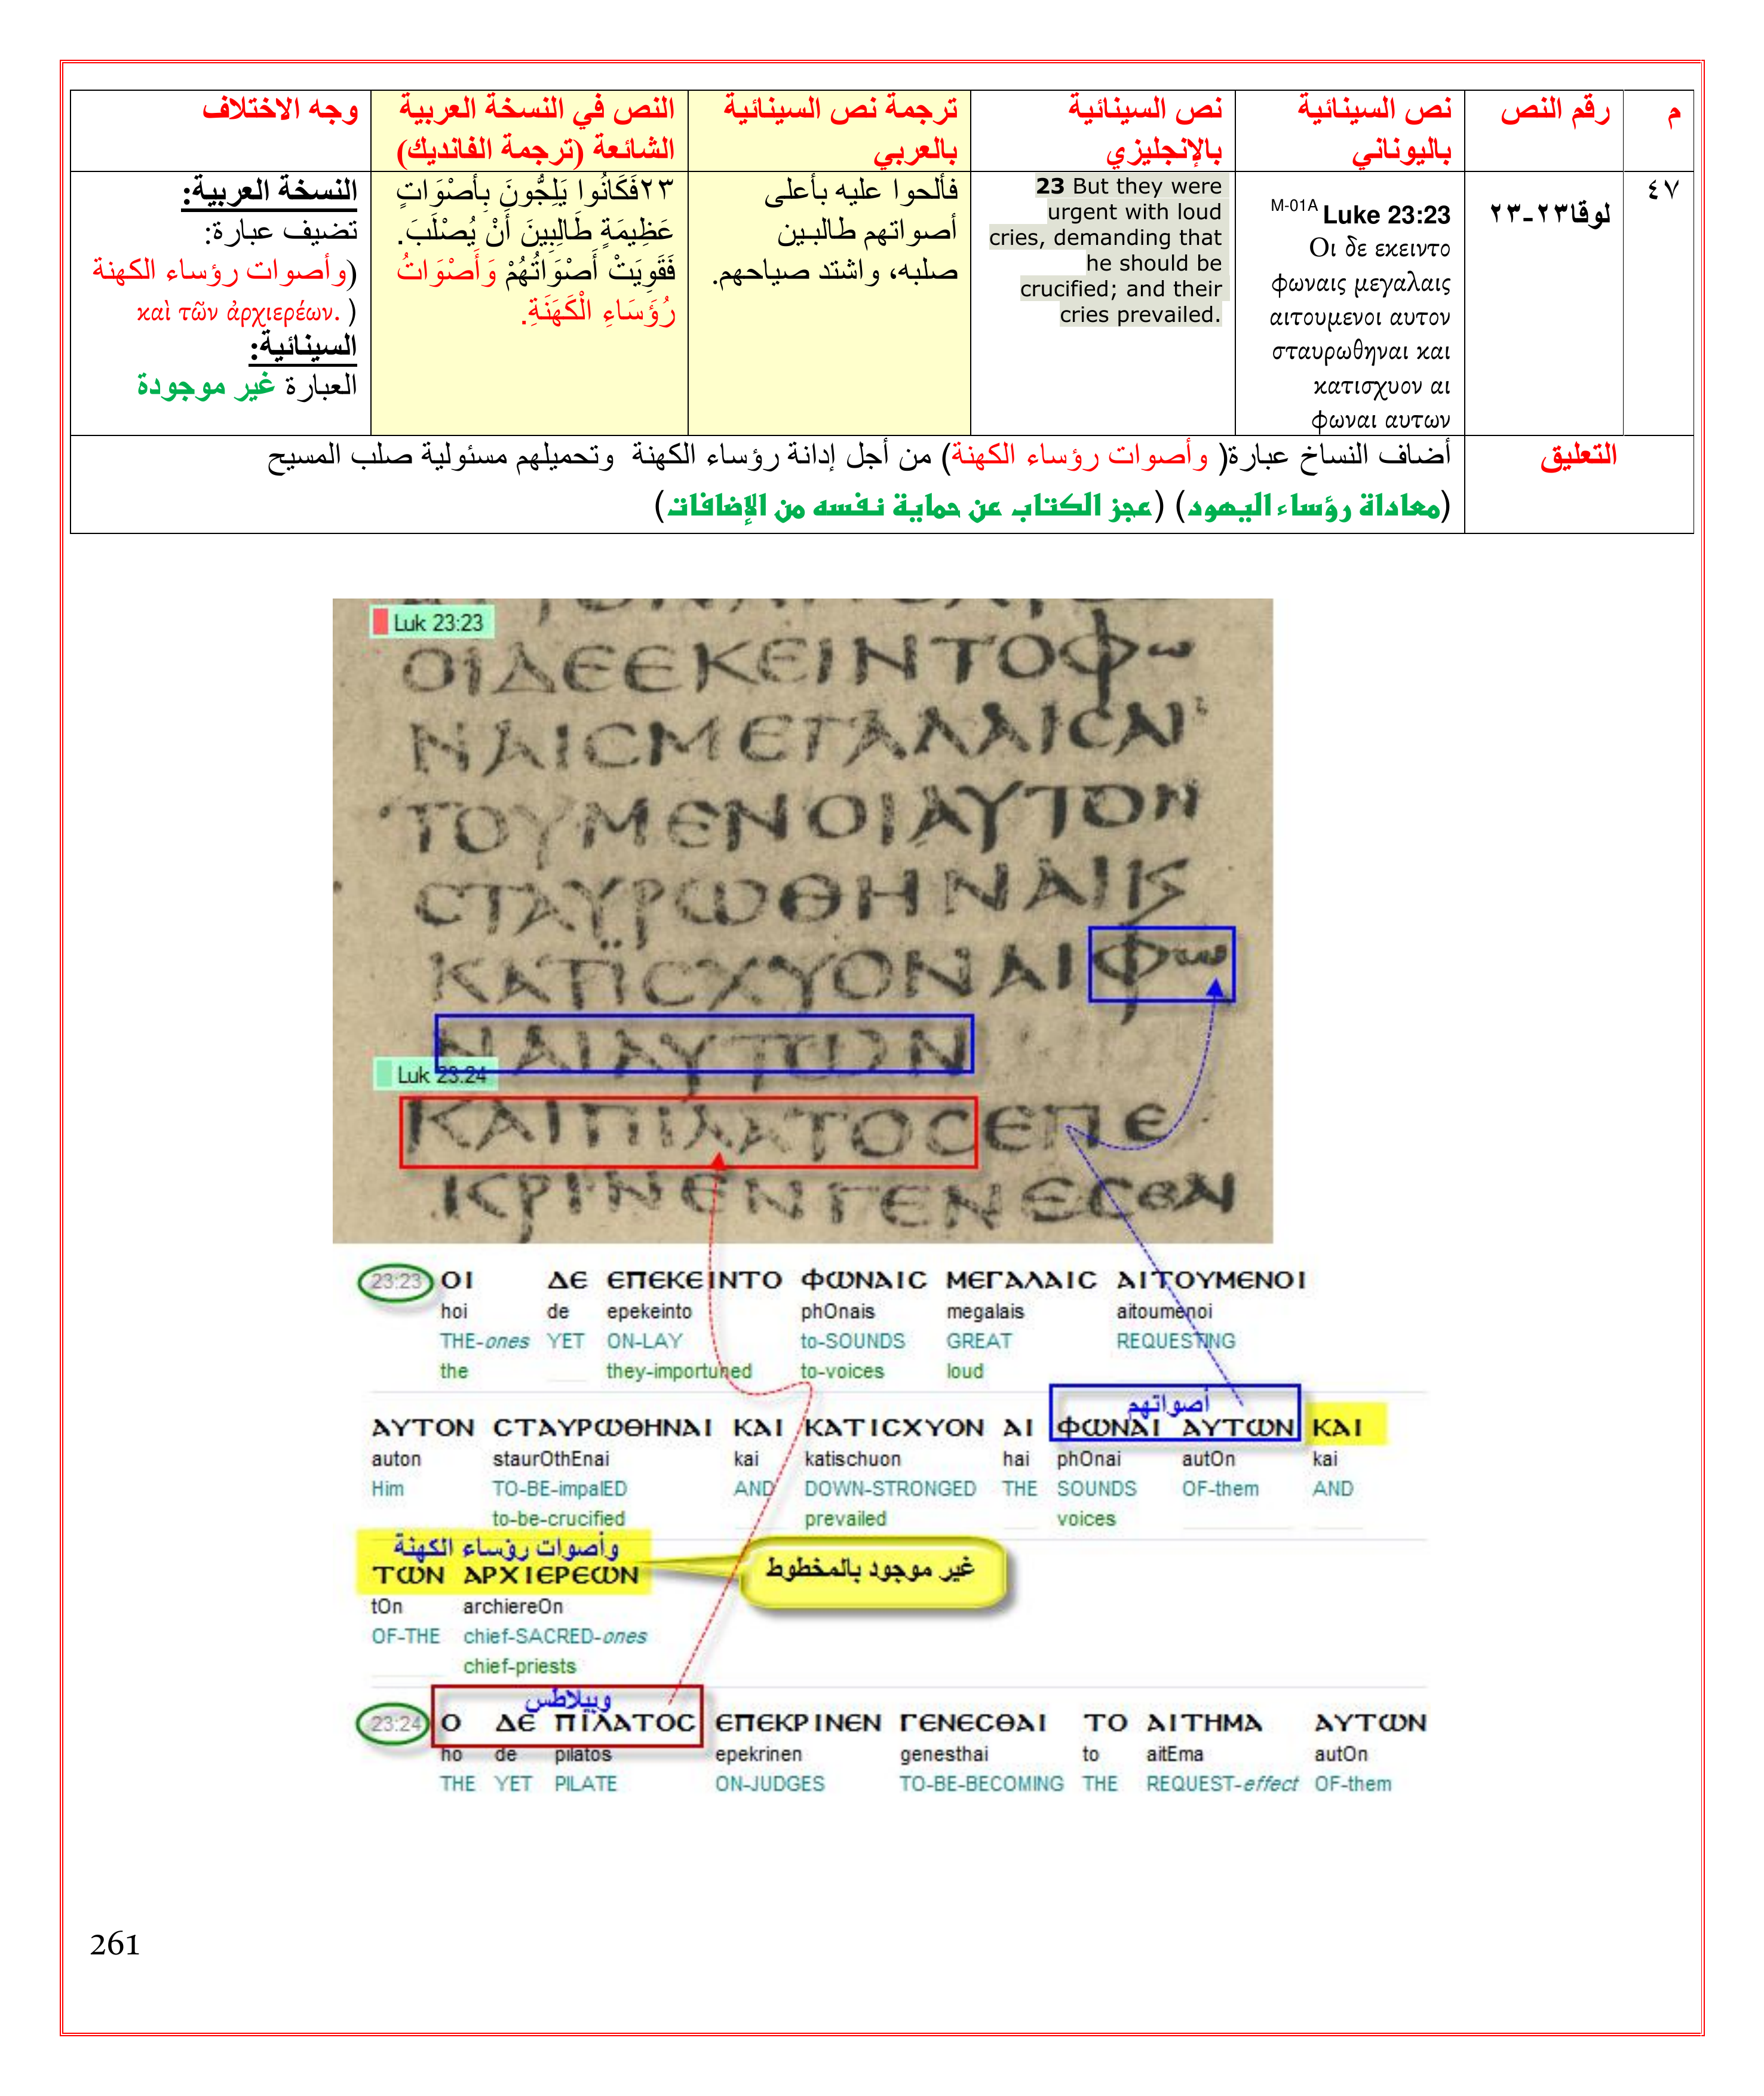 م
رقم النص
نص السينائية
باليوناني
نص السينائية
بالإنجليزي
ترجمة نص السينائية
بالعربي
النص في النسخة العربية
الشائعة (ترجمة الفانديك)
وجه الاختلاف
٤٧
لوقا٢٣-٢٣
M-01A Luke 23:23
Οι δε εκειντο
φωναις μεγαλαις
αιτουμενοι αυτον
σταυρωθηναι και
κατισχυον αι
φωναι αυτων
23 But they were
urgent with loud
cries, demanding that
he should be
crucified; and their
cries prevailed.
فألحوا عليه بأعلى
أصواتهم طالبين
صلبه، واشتد صياحهم.
٢٣فَكَانُوا يَلِجُّونَ بِأَصْوَاتٍ
عَظِيمَةٍ طَالِبِينَ أَنْ يُصْلَبَ.
فَقَوِيَتْ أَصْوَاتُهُمْ وَأَصْوَاتُ
رُؤَسَاءِ الْكَهَنَةِ.
النسخة العربية:
تضيف عبارة:
(وأصوات رؤساء الكهنة
καὶ τῶν ἀρχιερέων. )
السينائية:
العبارة غير موجودة
التعليق
أضاف النساخ عبارة( وأصوات رؤساء الكهنة) من أجل إدانة رؤساء الكهنة وتحميلهم مسئولية صلب المسيح
(معاداة رؤساء اليهود) (عجز الكتاب عن حماية نفسه من الإضافات)
Luk 23:23
ΟΙΔΕΕΚΕΙΝΤΟΦω
ΝΑΙCΜΕΓΑΛΑΙCΑΙ
ΤΟΥΜΕΝΟΙΑΥΤΟΝ
CΤΑΥΡωΘΗΝΑΙϗ
ΚΑΤΪCΧΥΟΝΑΙΦω
ΝΑΙΑΥΤωΝ
Luk 23:24
ΚΑΙΠΙΛΑΤΟCΕΠΕ
ΚΡΙΝΕΝΓΕΝΕCΘΑΙ
23:23 ΟΙ ΔΕ ΕΠΕΚΕΙΝΤΟ ΦωΝΑΙC ΜΕΓΑΛΑΙC ΑΙΤΟΥΜΕΝΟΙ
hoi de epekeinto phOnais megalais aitoumenoi
THE-ones YET ON-LAY to-SOUNDS GREAT REQUESTING
the they-importuned to-voices loud
أصواتهم
ΑΥΤΟΝ CΤΑΥΡωΘΗΝΑΙ ΚΑΙ ΚΑΤΙCΧΥΟΝ ΑΙ ΦωΝΑΙ ΑΥΤωΝ ΚΑΙ
auton staurOthEnai kai katischuon hai phOnai autOn kai
Him TO-BE-impalED AND DOWN-STRONGED THE SOUNDS OF-them AND
to-be-crucified prevailed voices
وأصوات رؤساء الكهنة
غير موجود بالمخطوط
ΤωΝ ΑΡΧΙΕΡΕωΝ
tOn archiereOn
OF-THE chief-SACRED-ones
chief-priests
وبيلاطس
23:24 Ο ΔΕ ΠΙΛΑΤΟC ΕΠΕΚΡΙΝΕΝ ΓΕΝΕCΘΑΙ ΤΟ ΑΙΤΗΜΑ ΑΥΤωΝ
ho de pilatos epekrinen genesthai to aitEma autOn
THE YET PILATE ON-JUDGES TO-BE-BECOMING THE REQUEST-effect OF-them
261